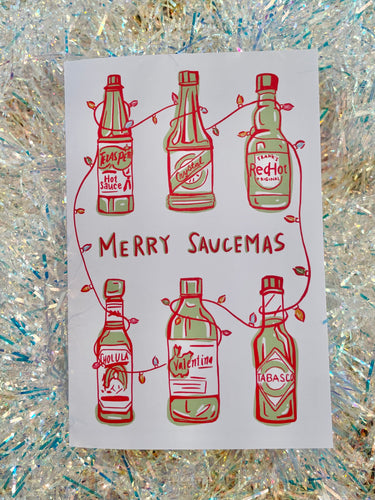 TEXAS PETE
Hot
Sauce
Crystal
FRANK'S
RedHot
ORIGINAL
MERRY SAUCEMAS
CHOLULA
Valentina
TABASCO